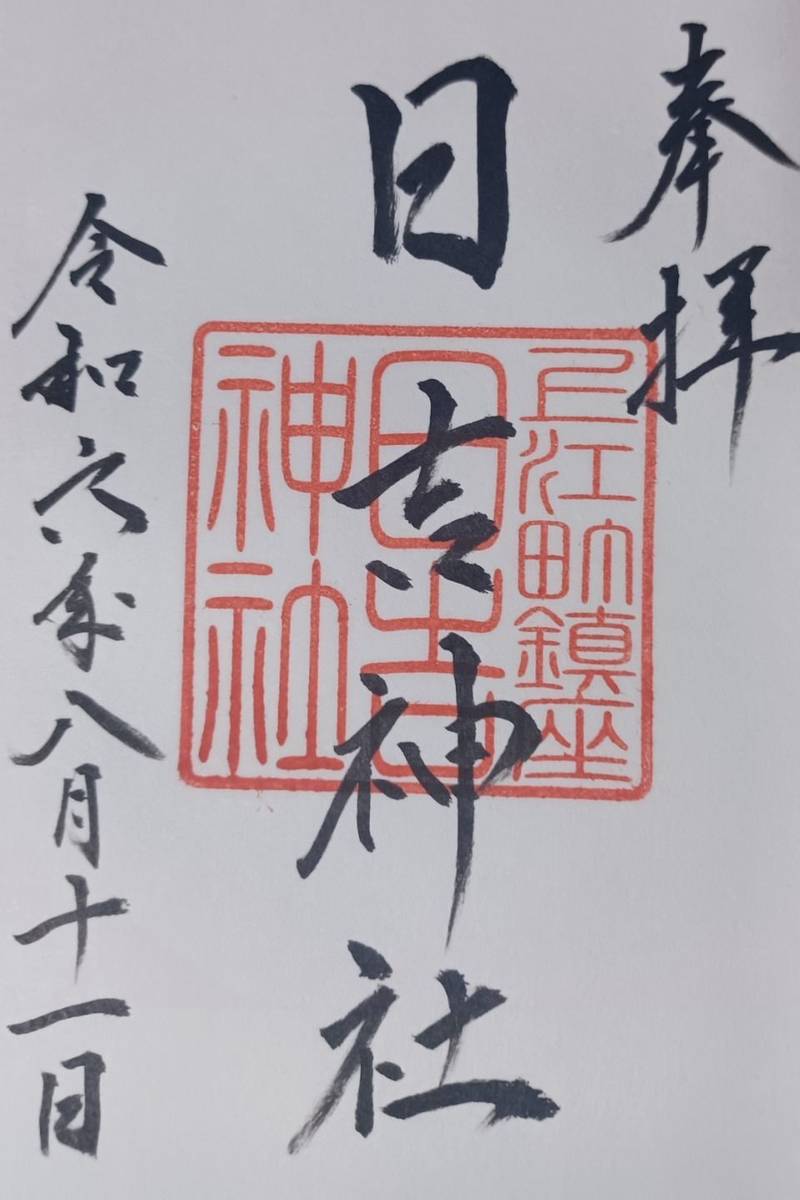 奉拝
日吉神社
令和六年八月十一日
江町鎮座
日吉
神社